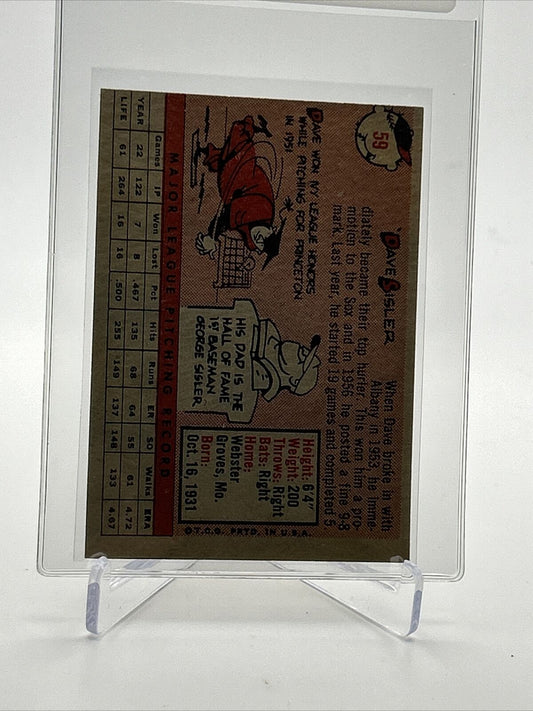 59
DAVE SISLER
When Dave broke in with
Albany in 1953, he imme-
diately became their top hurler. This won him a pro-
motion to the Sox and in 1956 he posted a fine 9-8
mark. Last year, he started 19 games and completed 5
DAVE WON IVY LEAGUE HONORS
WHILE PITCHING FOR PRINCETON
IN 1951
HIS DAD IS THE
HALL OF FAME
1ST BASEMAN
GEORGE SISLER
Height: 6'4"
Weight: 200
Throws: Right
Bats: Right
Home:
Webster
Groves, Mo.
Born:
Oct. 16, 1931
©T.C.G. PRTD. IN U.S.A.
MAJOR LEAGUE PITCHING RECORD
Games IP Won Lost Pct Hits Runs ER SO Walks ERA
YEAR 22 122 7 8 .467 135 68 64 55 61 4.72
LIFE 61 264 16 16 .500 255 149 137 148 133 4.67